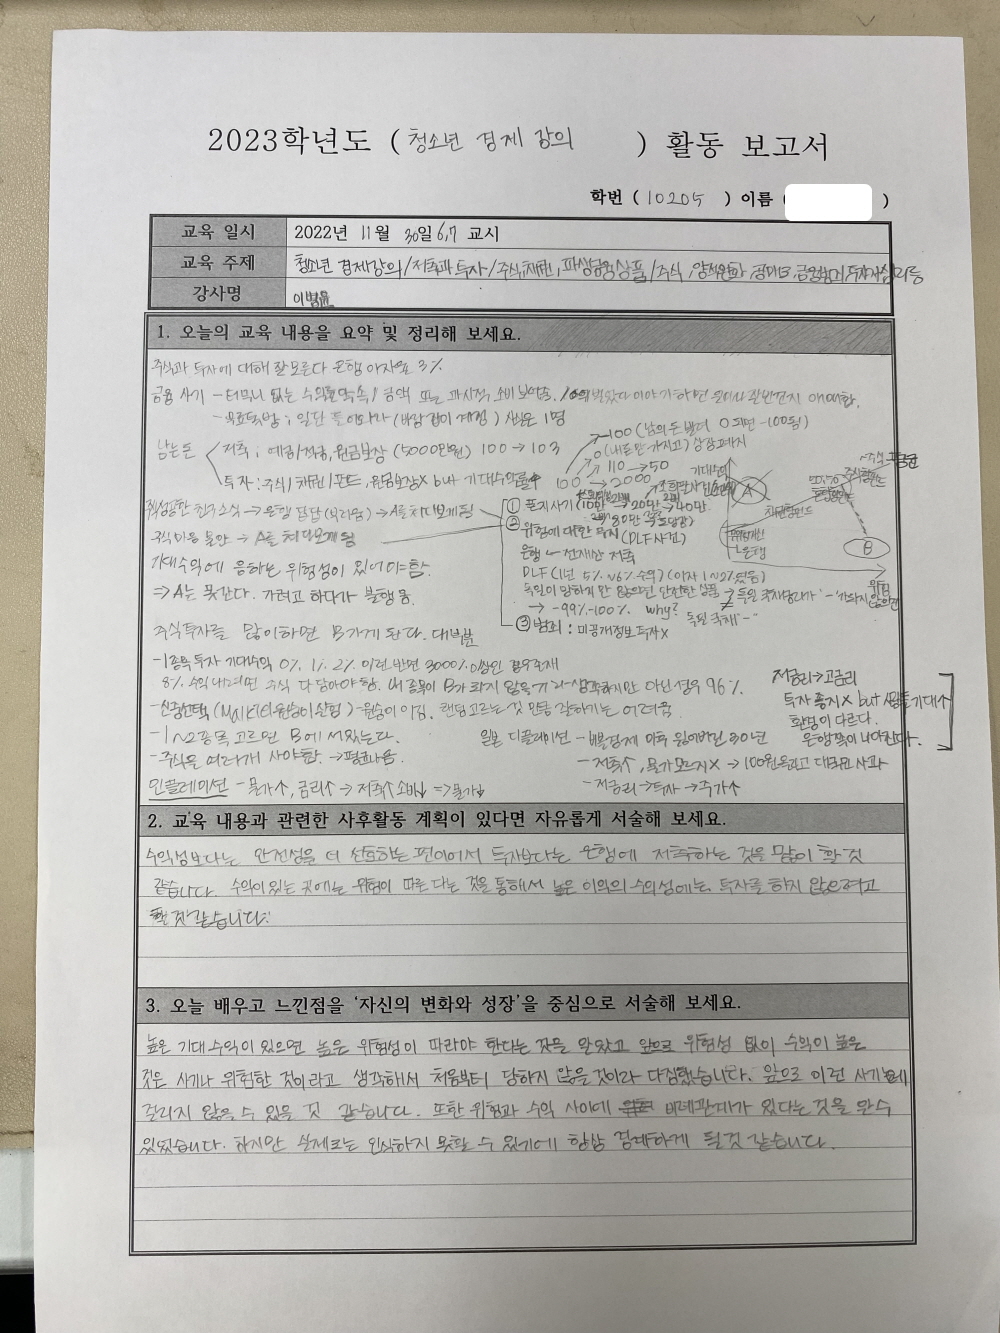 2023학년도 ( 청소년 경제 강의 ) 활동 보고서
학번 ( 10205 ) 이름 ( )
교육 일시 2022년 11월 30일 6,7 교시
교육 주제 청소년 경제강의/저축과 투자/주식,채권,파생금융상품/주식, 양적완화, 공매도,금융범죄,투자사심리등
강사명 이범윤
1. 오늘의 교육 내용을 요약 및 정리해 보세요.
주식과 투자에 대해 잘 모른다 은행 이자율 3%
금융 사기 - 터무니 없는 수익률 약속 / 금액 또는 과시적 소비
남는돈
저축 ; 예금/적금, 원금보장 (5000만원) 100 → 103
투자 : 주식/채권/펀드, 원금보장X but 기대수익률↑
-100 (남의 돈 빌려 0되면 -100됨)
0 (내돈만 가지고) 상장폐지
110 → 50
100 → 2000
기대수익
A
B
위험
은행
→ 은행 집담 → A를 쳐다보게됨
주식 마음 불안 → A를 쳐다보게 됨
기대수익에 응하는 위험성이 있어야함
⇒ A는 못간다. 가려고 하다가 불행 옴.
① 폰지사기 (10만 → 20만 → 40만
80만
② 위험에 대한 무지 (DLF 사건)
은행 - 전재산 저축
DLF (1년 5% ~ 6% 수익) (이자 1~2%였음)
독일이 망하지만 않으면 안전한 상품
→ -99%-100%. why? 독일 국채 "-"
③ 범죄 : 미공개정보 투자x
주식투자를 많이하면 B가게 된다. 대부분
-1종목 투자 기대수익 0% 1% 2% 이런 반면 3000% 이상인 경우 존재
8% 수익 내려면 주식 다 담아야 함. 내 종목이 B가 되지 않을거라 생각하지만 아닌 경우 96%.
- 원숭이 이김. 랜덤 고르는 것 만큼 잘하기는 어려움
-1~2종목 고르면 B에 서있는다.
-주식은 여러개 사야함. → 평균나옴
인플레이션 - 물가↑, 금리↑ → 저축↑ 소비↓ ⇒ 물가↓
일본 디플레이션 - 버블경제 이후 잃어버린 30년
- 저축↑, 물가 오르지X → 100원 올리고 대국민 사과
- 저금리 → 투자 → 주가↑
저금리 → 고금리
투자 좋지X but
환경이 다르다.
은행쪽이 나아진다.
2. 교육 내용과 관련한 사후활동 계획이 있다면 자유롭게 서술해 보세요.
수익성보다는 안전성을 더 선호하는 편이어서 투자보다는 은행에 저축하는 것을 많이 할 것
같습니다. 수익이 있는 곳에는 위험이 따른 다는 것을 통해서 높은 이익의 수익성에는 투자를 하지 않으려고
할 것 같습니다.
3. 오늘 배우고 느낀점을 '자신의 변화와 성장'을 중심으로 서술해 보세요.
높은 기대 수익이 있으면 높은 위험성이 따라야 한다는 것을 알았고 앞으로 위험성 없이 수익이 높은
것은 사기나 위험한 것이라고 생각해서 처음부터 당하지 않을 것이라 다짐했습니다. 앞으로 이런 사기에
걸리지 않을 수 있을 것 같습니다. 또한 위험과 수익 사이에 비례관계가 있다는 것을 알수
있었습니다. 하지만 실제로는 인식하지 못할 수 있기에 항상 경계하게 될것 같습니다.